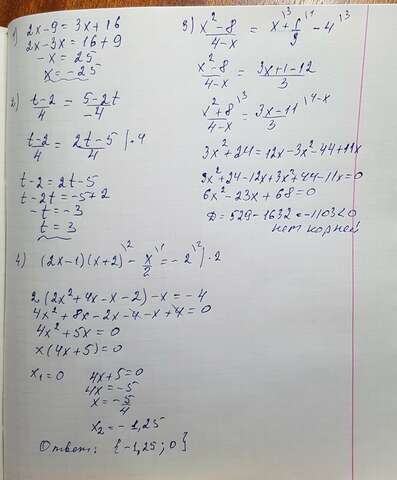 1) 2x-9=3x+16
2x-3x=16+9
-x=25
x=-25
2) t-2/4 = 5-2t/-4
t-2/4 = 2t-5/4 |·4
t-2=2t-5
t-2t=-5+2
-t=-3
t=3
3) x²-8/4-x = x\3 + 1\1/3 - 4\3
x²-8/4-x = 3x+1-12/3
x²+8\3/4-x = 3x-11\4-x/3
3x²+24=12x-3x²-44+11x
3x²+24-12x+3x²+44-11x=0
6x²-23x+68=0
D=529-1632=-1103<0
нет корней
4) (2x-1)(x+2)\2 - x\1/2 = -2\2 |·2
2(2x²+4x-x-2)-x=-4
4x²+8x-2x-4-x+4=0
4x²+5x=0
x(4x+5)=0
x₁=0 4x+5=0
4x=-5
x=-5/4
x₂=-1,25
Ответ: {-1,25; 0}